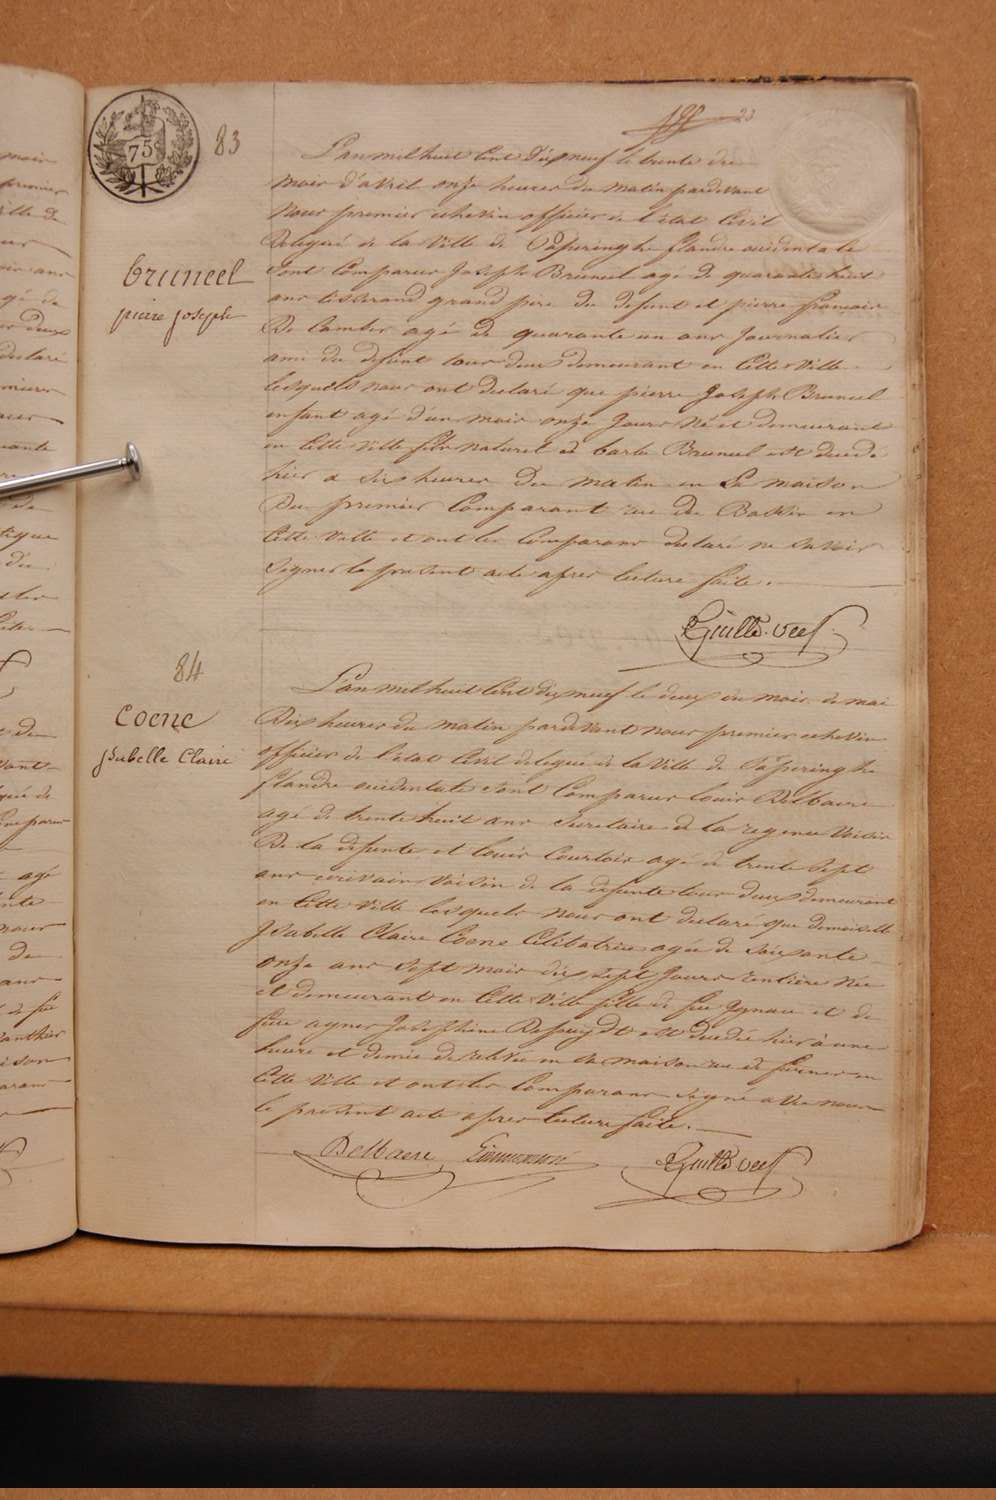 23
75
83
L'an mil huit cent dix neuf le trente du
mois d'avril onze heures du matin pardevant
Nous premier echevin officier de l'état civil
Delegué de la ville de Poperinghe flandre occidentale
sont comparus Joseph Bruneel agé de quarante huit
ans tisserand grand pere du defunt et pierre francois
De Cambu agé de quarante un ans Journalier
ami du defunt tous deux demeurant en cette ville
lesquels nous ont declaré que pierre Joseph Bruneel
enfant agé d'un mois onze Jours né et demeurant
en cette ville fils naturel de barbe Bruneel est decedé
hier a dix heures du matin en la maison
Du premier comparant rue du Bassin en
cette ville et ont les comparans declaré ne savoir
signer le present acte apres lecture faite.
bruneel
pierre Joseph
84
coene
Isabelle Claire
L'an mil huit cent dix neuf le deux du mois de mai
Dix heures du matin pardevant nous premier echevin
officier de l'état civil delegué de la ville de Poperinghe
flandre occidentale sont comparus louis Delbaere
agé de trente huit ans Secretaire de la regence voisin
De la defunte et louis Courtois agé de trente sept
ans ecrivain voisin de la defunte tous deux demeurant
en cette ville lesquels nous ont declaré que demoiselle
Isabelle Claire Coene Celibatrice agée de soixante
onze ans sept mois dix sept Jours rentière née
et demeurant en cette ville fille de feu Ignace et de
feue agnes Josephine Desuydt est decedée hier à une
heure et demie de relevée en sa maison rue de furnes en
cette ville et ont les comparans signé avec nous
le present acte apres lecture faite.
Delbaere